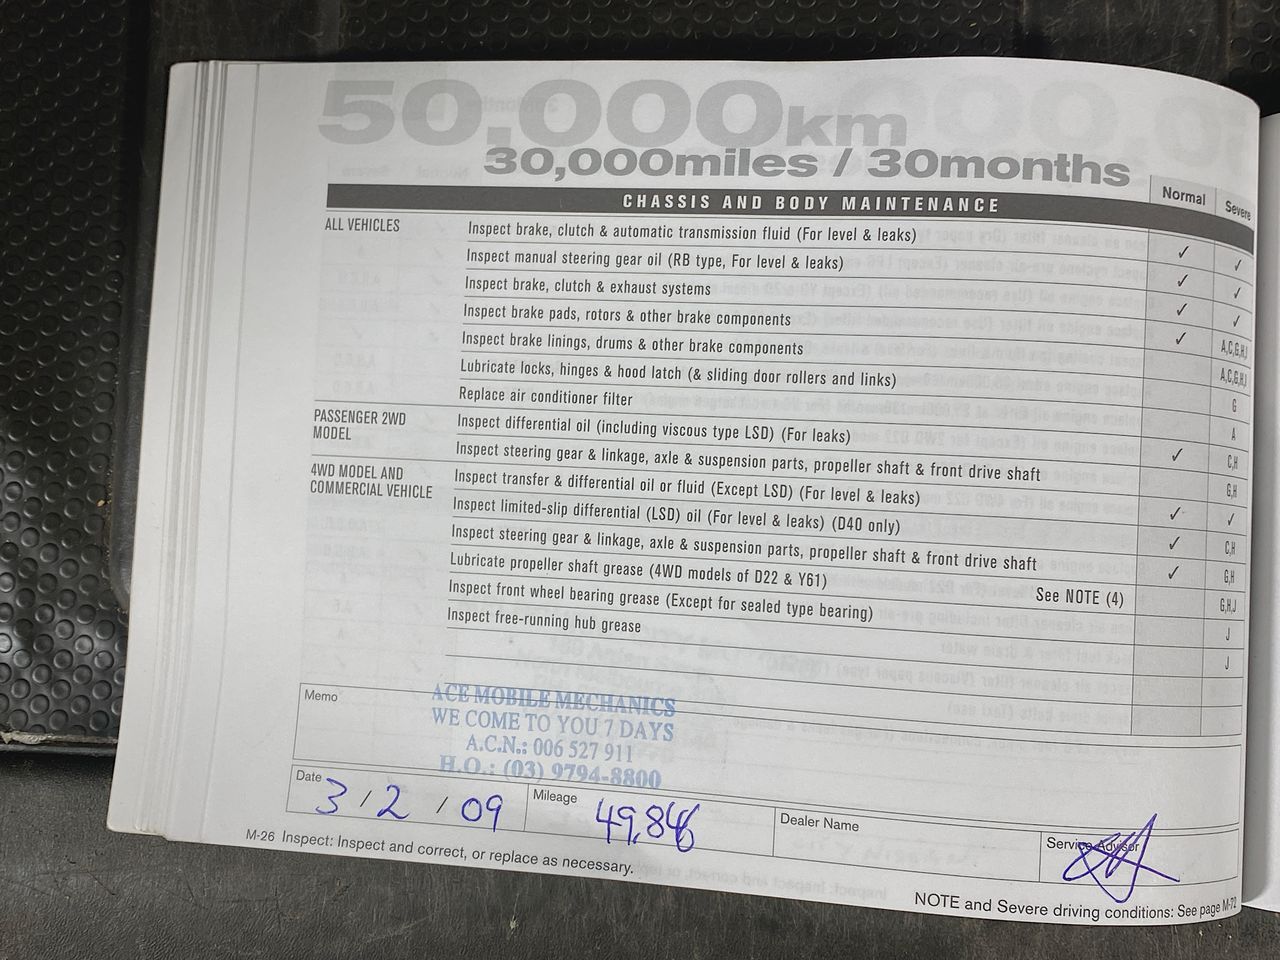 50,000km
30,000miles / 30months
Normal Severe
CHASSIS AND BODY MAINTENANCE
ALL VEHICLES Inspect brake, clutch & automatic transmission fluid (For level & leaks) ✓ ✓
Inspect manual steering gear oil (RB type, For level & leaks) ✓ ✓
Inspect brake, clutch & exhaust systems ✓ ✓
Inspect brake pads, rotors & other brake components ✓ A,C,G,H,J
Inspect brake linings, drums & other brake components A,C,G,H,J
Lubricate locks, hinges & hood latch (& sliding door rollers and links) G
Replace air conditioner filter A
PASSENGER 2WD MODEL Inspect differential oil (including viscous type LSD) (For leaks) ✓ C,H
Inspect steering gear & linkage, axle & suspension parts, propeller shaft & front drive shaft G,H
4WD MODEL AND COMMERCIAL VEHICLE Inspect transfer & differential oil or fluid (Except LSD) (For level & leaks) ✓ ✓
Inspect limited-slip differential (LSD) oil (For level & leaks) (D40 only) ✓ C,H
Inspect steering gear & linkage, axle & suspension parts, propeller shaft & front drive shaft ✓ G,H
Lubricate propeller shaft grease (4WD models of D22 & Y61) See NOTE (4) G,H,J
Inspect front wheel bearing grease (Except for sealed type bearing) J
Inspect free-running hub grease J
Memo
ACE MOBILE MECHANICS
WE COME TO YOU 7 DAYS
A.C.N.: 006 527 911
H.O.: (03) 9794-8800
Date 3 / 2 / 09 Mileage Dealer Name Service Advisor
M-26 Inspect: Inspect and correct, or replace as necessary.
NOTE and Severe driving conditions: See page M-72